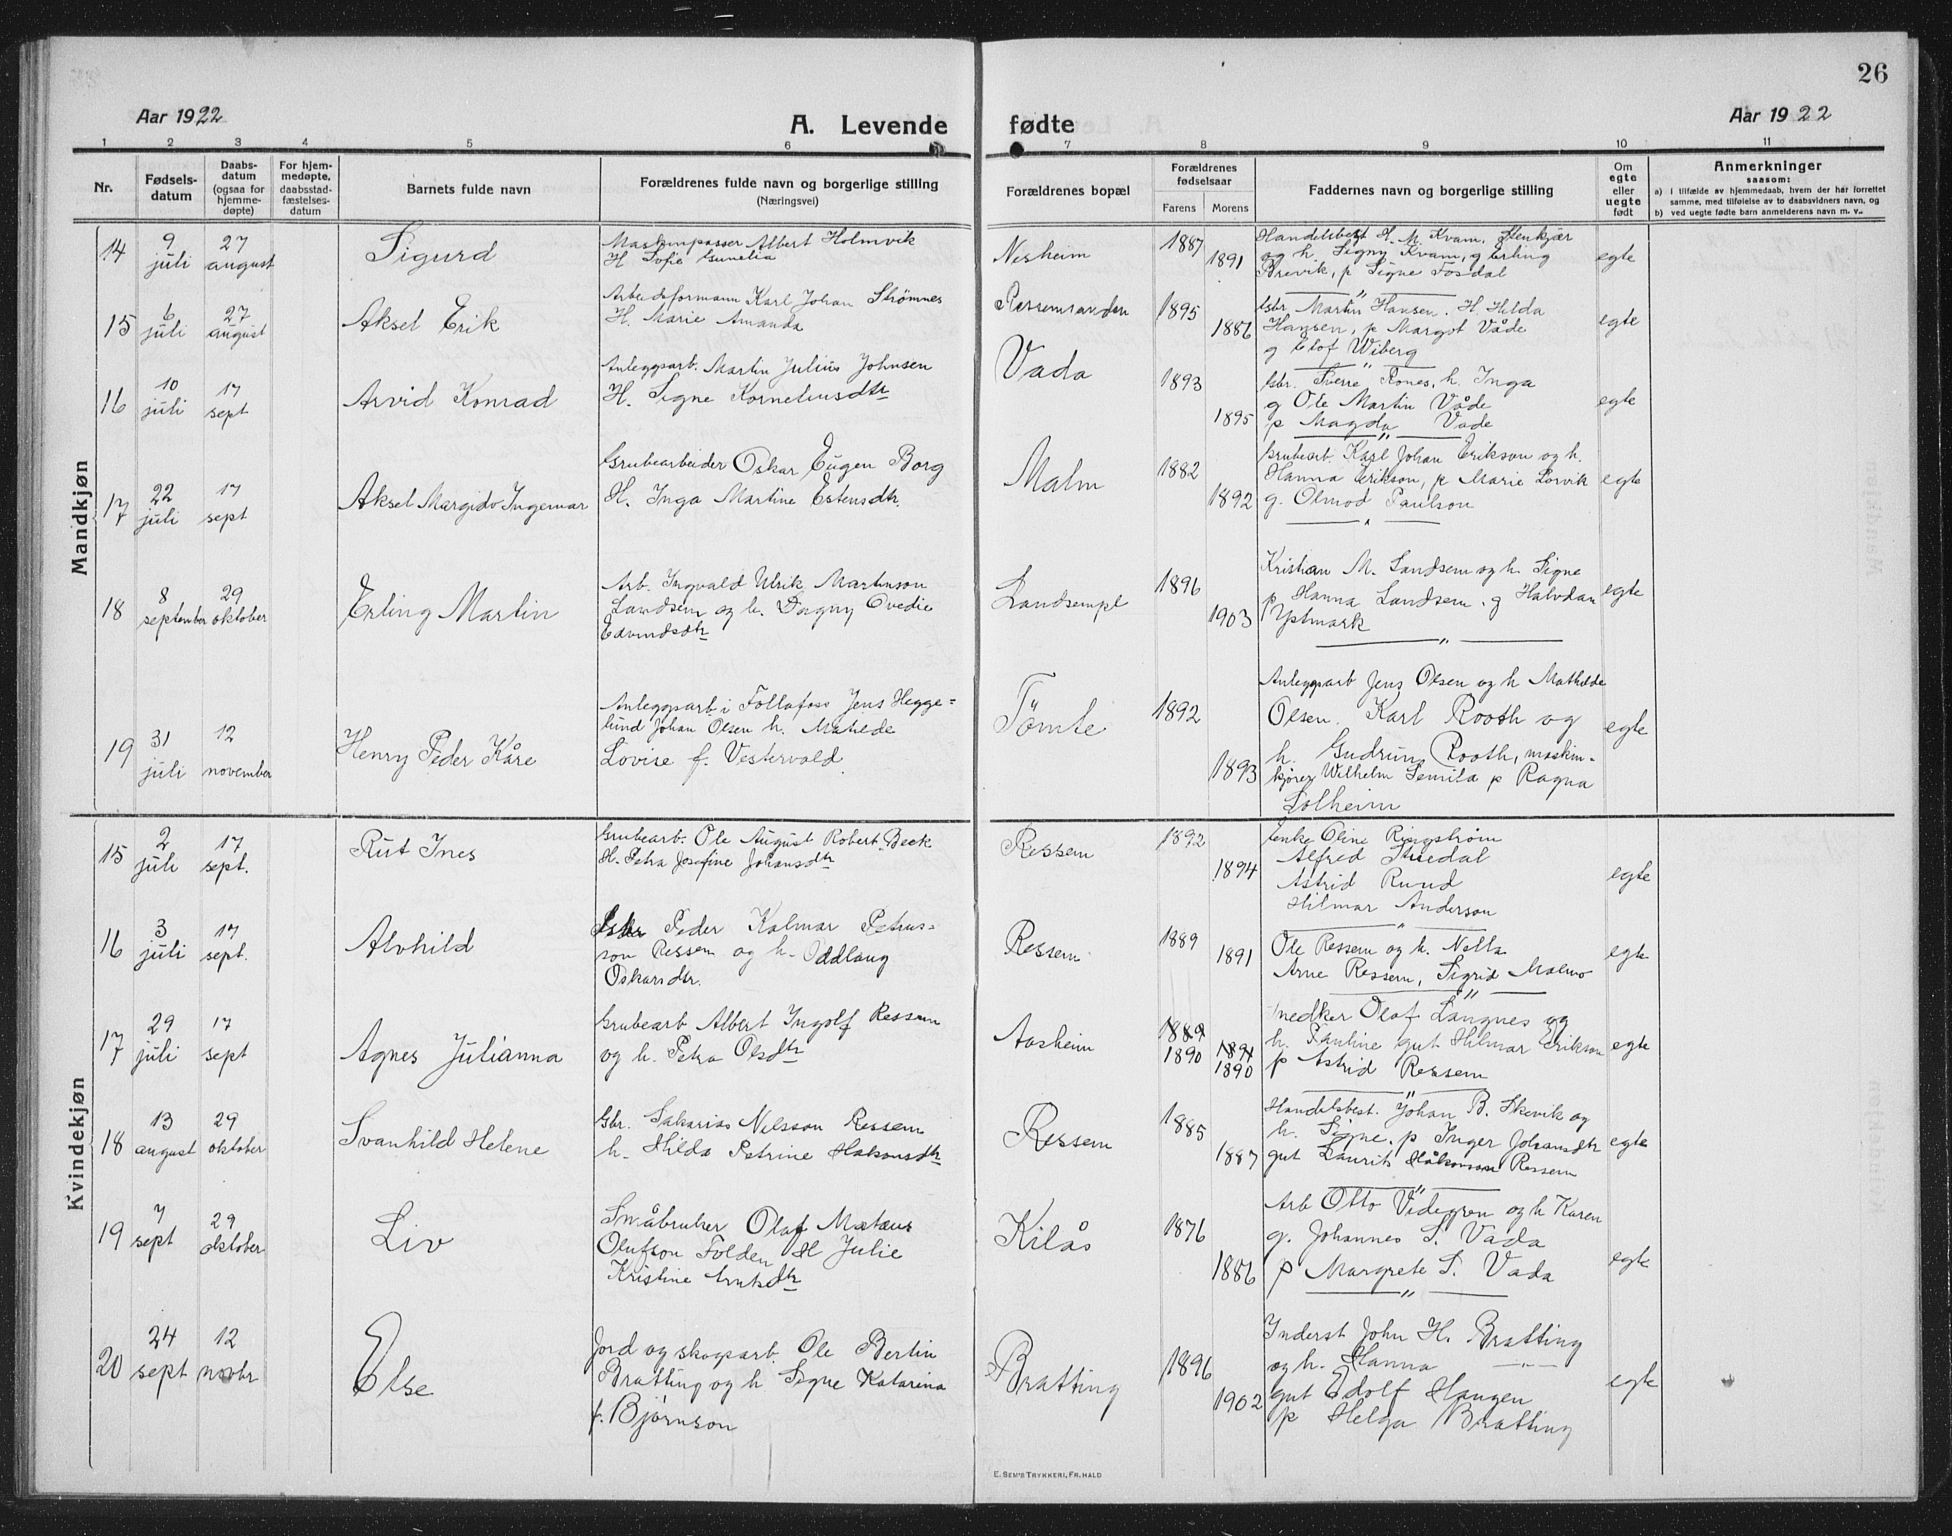 26
Aar 1922
A. Levende fødte
Aar 1922
1 2 3 4 5 6 7 8 9 10 11
Nr.
Fødsels-
datum
Daabs-
datum
(ogsaa for
hjemme-
døpte)
For hjem-
medøpte,
daabsstad-
fæstelses-
datum
Barnets fulde navn
Forældrenes fulde navn og borgerlige stilling
(Næringsvei)
Forældrenes bopæl
Forældrenes
fødselsaar
Farens Morens
Faddernes navn og borgerlige stilling
Om
egte
eller
uegte
født
Anmerkninger
saasom:
a) I tilfælde av hjemmedaab, hvem der har forrettet
samme, med tilføielse av to daabsvidners navn, og
b) ved uegte fødte barn anmelderens navn m. v..
Mandkjøn
14 9 juli 27 august Sigurd
Maskinpasser Albert Holmvik
H Sofie Gunelia
Nesheim 1887 1891
Handelsbest H. M. Kvam, Stenkjær
og h. Signy Kvam, g Erling
Brevik, p Signe Fosdal
egte
15 6 juli 27 august Aksel Erik
Arbeidsformann Karl Johan Strømnes
H. Marie Amanda
Ressemsanden 1895 1886
Gbr. Martin Hansen. H. Hilda
Hansen, p Margot Våde
g Olof Wiberg
egte
16 10 juli 17 sept Arvid Konrad
Anleggsarb. Martin Julius Johnsen
H. Signe Kornelinsdtr
Vada 1893 1895
Gbr. Sverre Rones, h. Inga
g Ole Martin Våde
p Magda Vade
egte
17 22 juli 17 sept Aksel Margido Ingemar
Grubearbeider Oskar Eugen Borg
H. Inga Martine Estensdtr.
Malm 1882 1892
Grubearb. Karl Johan Erikson og h.
Hanna Erikson, p Marie Lorvik
g. Olmod Paulson
egte
18 8 september 29 oktober Erling Martin
Arb. Ingvald Ulrik Martinson
Landsem og h. Dagny Ovedie
Edvindsdtr
Landsempl 1896 1903
Kristian M. Landsem og h. Signe
p Hanna Landsem. g Halvdan
Ystmark
egte
19 31 juli 12 november Henry Peder Kåre
Anleggsarb. i Follafoss Jens Hegge=
lund Johan Olsen h. Matilde
Lovise f. Vestervald
Tømte 1892 1893
Anleggsarb Jens Olsen og h Mathilde
Olsen. Karl Rooth og
h. Gudrun Rooth, maskin-
kjører Wilhelm Semila p Ragna
Solheim
egte
Kvindekjøn
15 2 juli 17 sept. Rut Ines
Grubearb. Ole August Robert Beck
H. Petra Josefine Johansdtr
Ressem 1892 1894
Enke Oline Ringstrøm
Alfred Stuedal
Astrid Rund
Hilmar Anderson
egte
16 3 juli 17 sept. Alvhild
Peder Kalmar Petrus=
son Ressem og h. Oddlaug
Oskarsdtr.
Ressem 1889 1891
Ole Ressem og h. Nella
Arne Ressem, Sigrid Malmo
egte
17 29 juli 17 sept Agnes Julianna
Grubearb Albert Ingolf Ressem
og h. Petra Olsdtr
Aasheim 1889 1890 1891 1890
Snedker Olaf Langnes og
h. Pauline gut Hilmar Erikson
p Astrid Ressem
egte
18 13 august 29 oktober Svanhild Helene
Gbr. Sakarias Nelsson Ressem
h. Hilda Petrine Hakonsdtr
Ressem 1885 1887
Handelsbest. Johan B. Skevik og
h. Signe. p Inger Johansdtr
gut Laurits Håkonson Ressem
egte
19 7 sept 29 oktober Liv
Småbruker Olaf Mateus
Olufson Folden H Julie
Kristine Arntsdtr
Kilås 1876 1886
Arb Otto Videgren og h Karen
g. Johannes S. Vada
p Margrete S. Vada
egte
20 24 sept 12 novbr Else
Jord og skogsarb. Ole Bertin
Bratting og h Signe Katarina
f. Bjørnson
Bratting 1896 1902
Inderst John H. Bratting
og h. Hanna —"—
gut Edolf Haugen
p Helga Bratting
egte
E. SEM'S TRYKKERI, FR. HALD